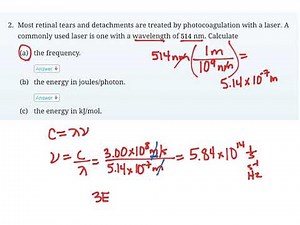 2. Most retinal tears and detachments are treated by photocoagulation with a laser. A
commonly used laser is one with a wavelength of 514 nm. Calculate
(a) the frequency.
Answer
514 nm (1m / 10⁹ nm) =
5.14 x 10⁻⁷ m
(b) the energy in joules/photon.
Answer
(c) the energy in kJ/mol.
C = λν
ν = C/λ = 3.00 x 10⁸ m/s / 5.14 x 10⁻⁷ m = 5.84 x 10¹⁴ 1/s
s⁻¹
Hz
3E